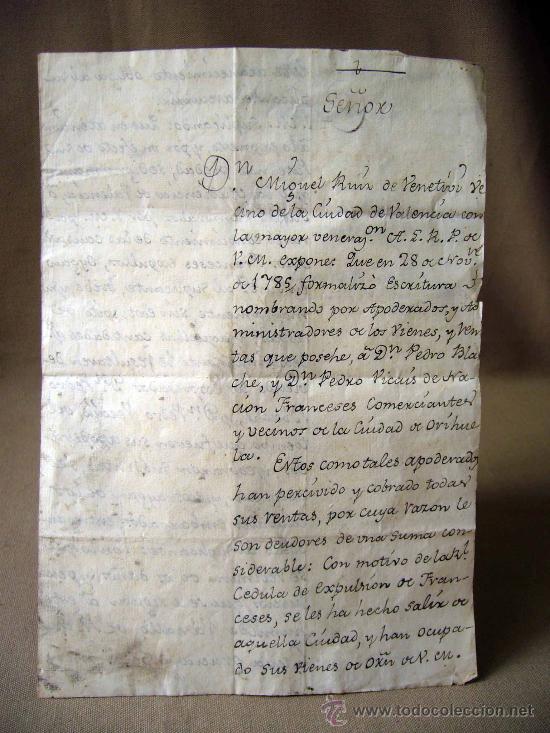 Señor
Dn. Miguel Ruiz de Ve
cino de la Ciudad de Valencia con
la mayor veneraz.on A. L. R. P. de
V. M. expone: Que en 28 de Nov.ve
de 1785, formalizò Escritura
nombrando por Apoderados, y Ad
ministradores de los Vienes, y Ren
tas que posehe, a Dn Pedro Bla
che, y Dn Pedro de Na
cion Franceses Comerciantes
y vecinos de la Ciudad de Orihue
la.
Estos como tales apoderados
han percivido y cobrado todas
sus rentas, por cuya razon le
son deudores de una suma con
siderable: Con motivo de la Rl.
Cedula de expulsion de Fran
ceses, se les ha hecho salir de
aquella Ciudad, y han ocupa
do sus vienes de Orñ de V. M.
todocoleccion
www.todocoleccion.net